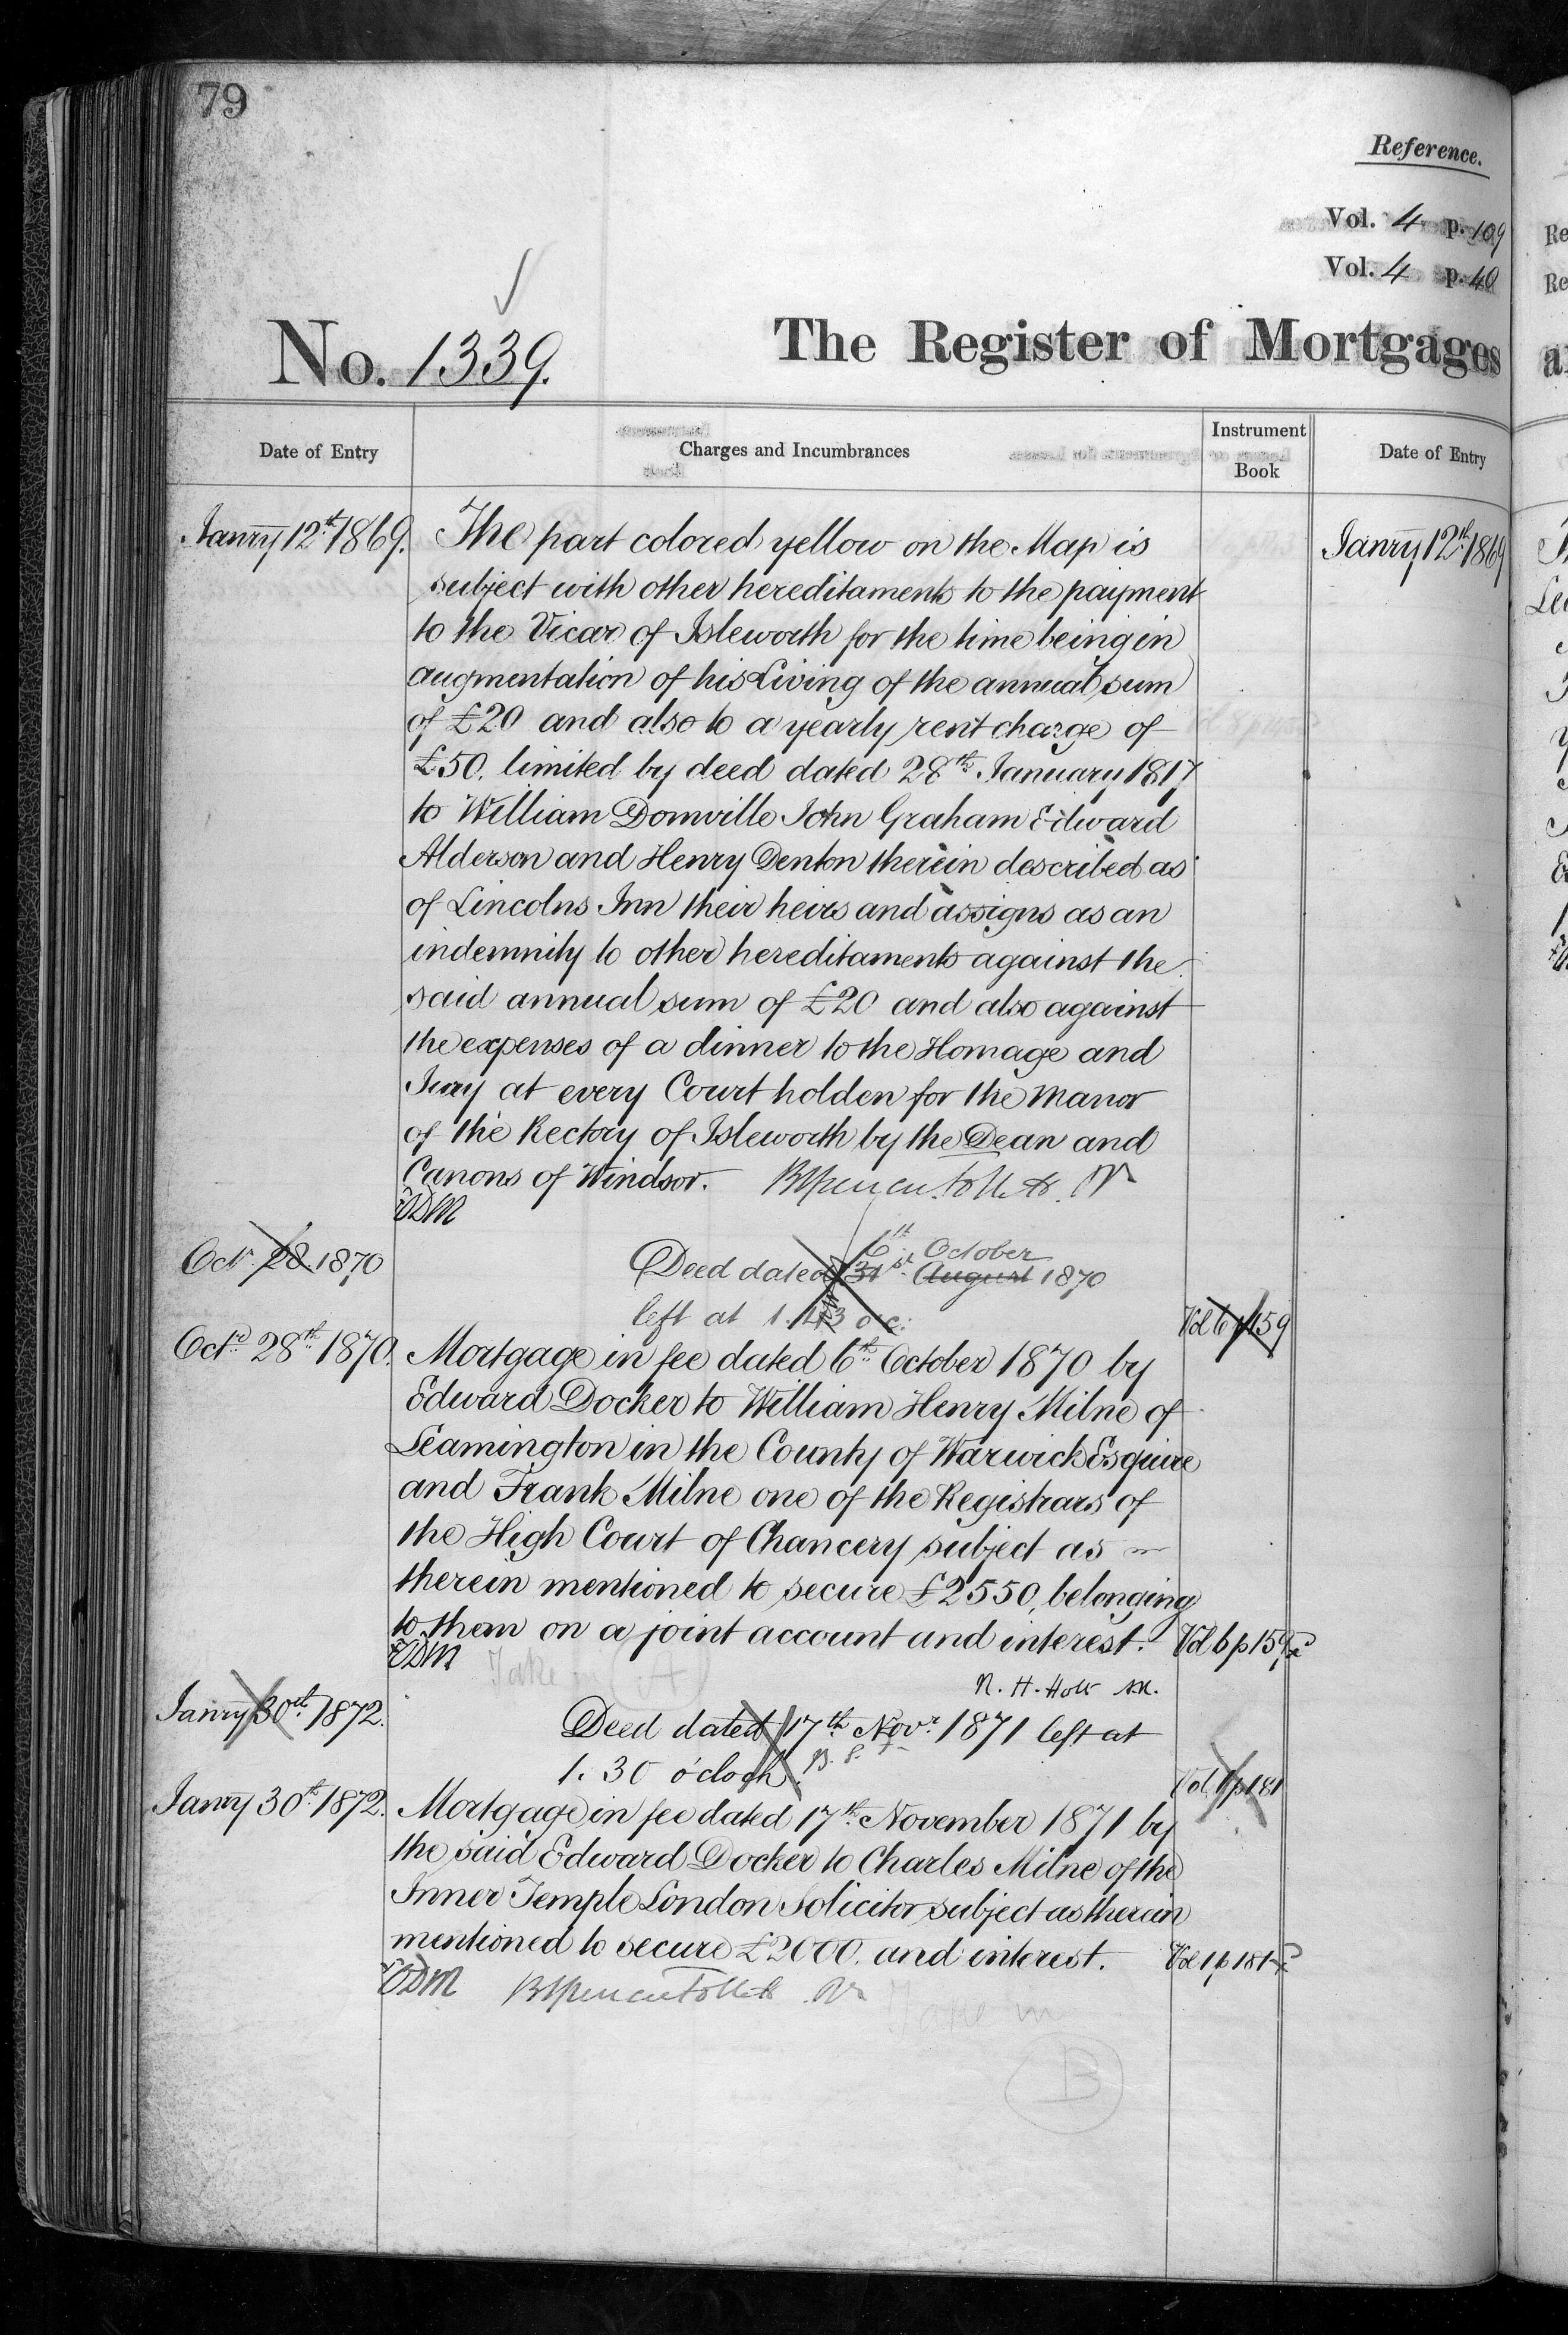 79
Reference.
Vol. 4 p. 109
Vol. 4 p. 40
No. 1339.
The Register of Mortgages
Date of Entry
Charges and Incumbrances
Instrument Book
Date of Entry
Janry 12th 1869.
The part colored yellow on the Map is
subject with other hereditaments to the payment
to the Vicar of Isleworth for the time being in
augmentation of his Living of the annual sum
of £20 and also to a yearly rent charge of
£50. limited by deed dated 28th January 1817
to William Domville John Graham Edward
Alderson and Henry Denton therein described as
of Lincolns Inn their heirs and assigns as an
indemnity to other hereditaments against the
said annual sum of £20 and also against
the expenses of a dinner to the Homage and
Jury at every Court holden for the Manor
of the Rectory of Isleworth by the Dean and
Canons of Windsor.
ODM
Janry 12th 1869
Oct 28. 1870
6th October
Deed dated 31st August 1870
left at 1.43 oc:
Vol 6 p 159
Octr 28th 1870.
Mortgage in fee dated 6th October 1870 by
Edward Docker to William Henry Milne of
Leamington in the County of Warwick Esquire
and Frank Milne one of the Registrars of
the High Court of Chancery subject as
therein mentioned to secure £2550, belonging
to them on a joint account and interest.
Vol 6 p 159
ODM
Take in
A
R. H. Holt
Janry 30th 1872.
Deed dated 17th Novr 1871 left at
1. 30 o'clock.
Vol. 1 p 181
Janry 30th 1872.
Mortgage in fee dated 17th November 1871 by
the said Edward Docker to Charles Milne of the
Inner Temple London Solicitor subject as therein
mentioned to secure £2000. and interest.
Vol 1 p 181
ODM
Take in
B